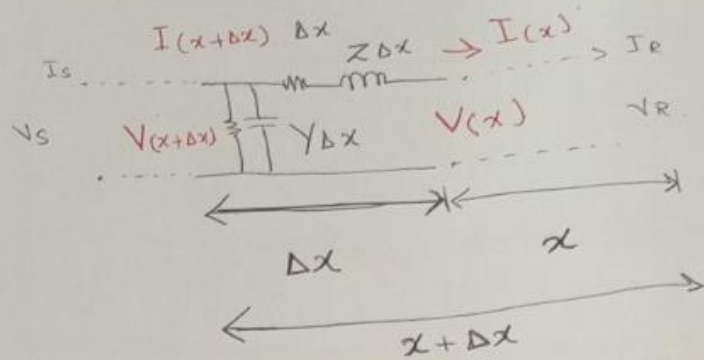 I(x+Δx) Δx
ZΔx → I(x)
Is
IR
Vs
V(x+Δx)
YΔx
V(x)
VR
Δx
x
x+Δx